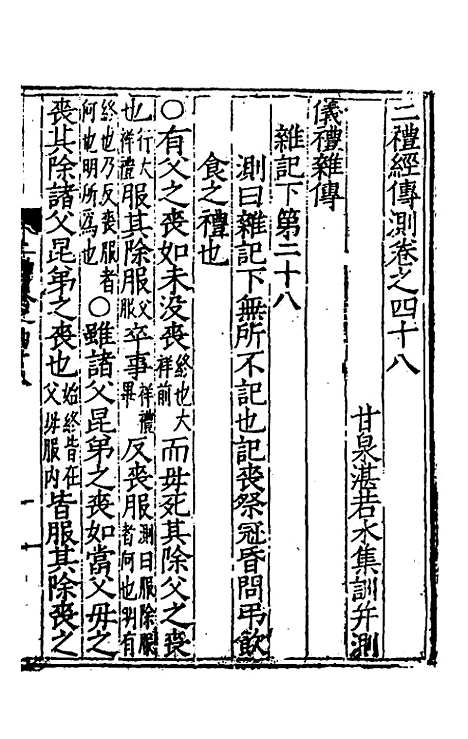 二禮經傳測卷之四十八
甘泉湛若水集訓并測
儀禮雜傳
雜記下第二十八
測曰雜記下無所不記也記喪祭冠昏問弔飲
食之禮也
○有父之喪如未没喪終也大祥前而毋死其除父之喪
也行大祥禮服其除服父服卒事祥禮畢反喪服測曰服除服者何也明有
終也乃反喪服者何也明所爲也○雖諸父昆弟之喪如當父毋之
喪其除諸父昆弟之喪也始終皆在父毋服内皆服其除喪之